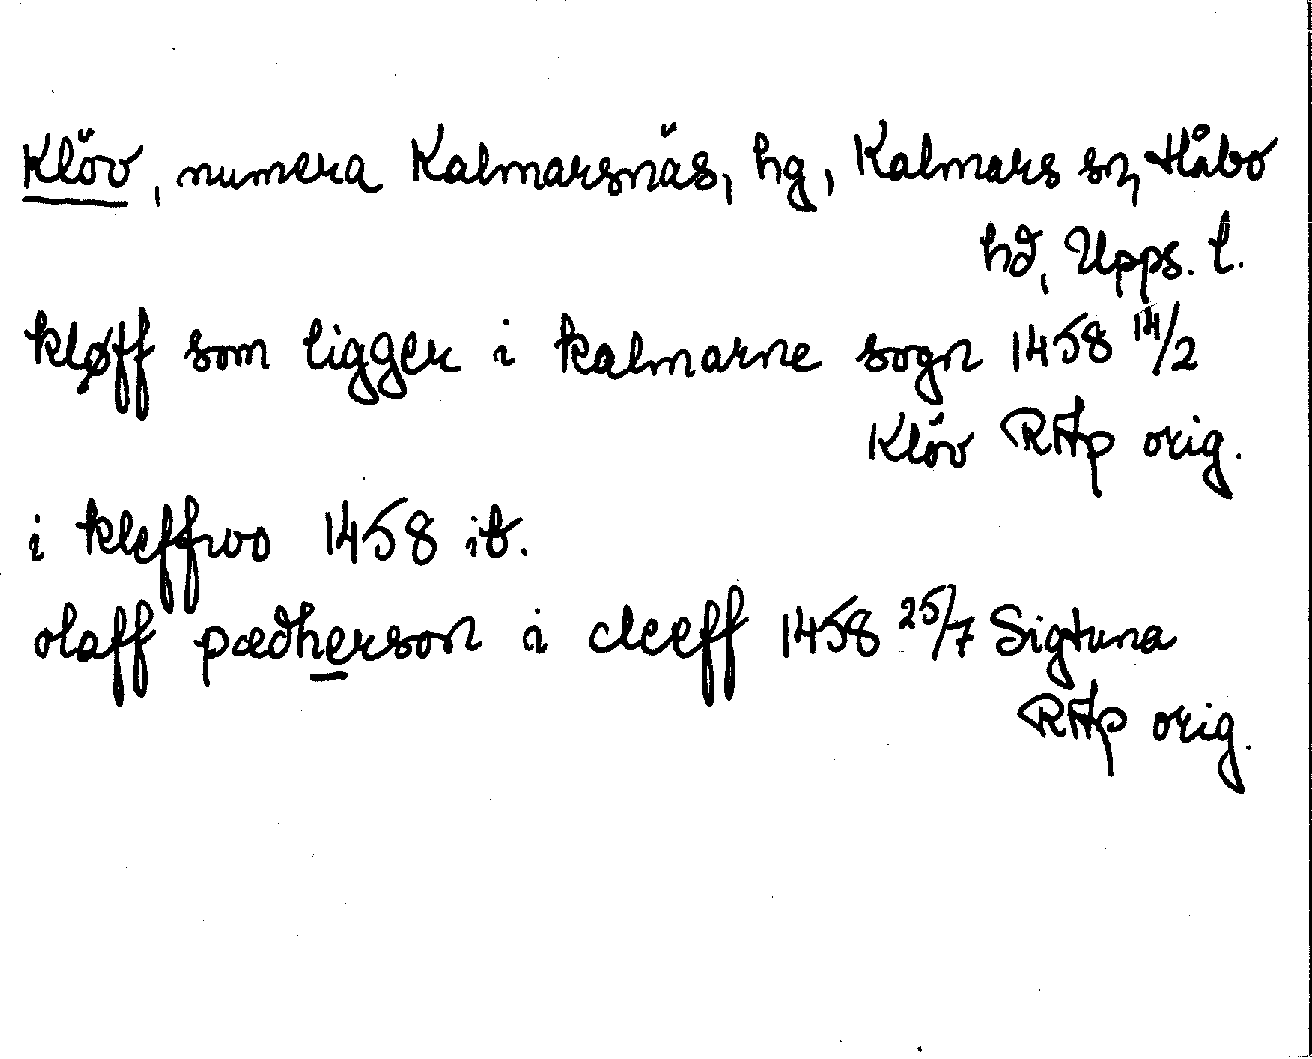 Klöv, numera Kalmarsnäs, hg, Kalmars sn, Håbo
hd, Upps. l.
kløff som ligger i kalmarne sogn 1458 14/2
Klöv RAp orig.
i kleffwo 1458 ib.
olaff pædherson i cleeff 1458 25/7 Sigtuna
RAp orig.